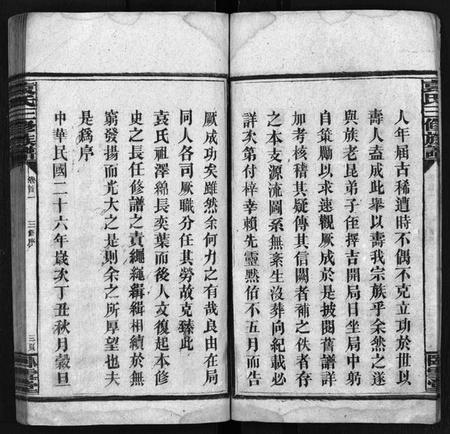 人年屆古稀遭時不偶不克立功於世以
壽人盍成此舉以壽我宗族乎余然之遂
與族老昆弟子侄擇吉開局日坐局中躬
自策勵以求速觀厥成於是披閱舊譜詳
加考核稽其疑傳其信闕者補之佚者存
之本支源流圖系無紊生沒葬向紀載必
詳次第付梓幸賴先靈默佑不五月而告
厥成功矣雖然余何力之有哉良由在局
同人各司厥職分任其勞故克臻此
袁氏祖澤綿長奕葉而後人文復起本修
史之長任修譜之責繩繩緝緝相續於無
窮發揚而光大之是則余之所厚望也夫
是為序
中華民國二十六年歲次丁丑秋月穀旦
袁氏三修族譜
三修序